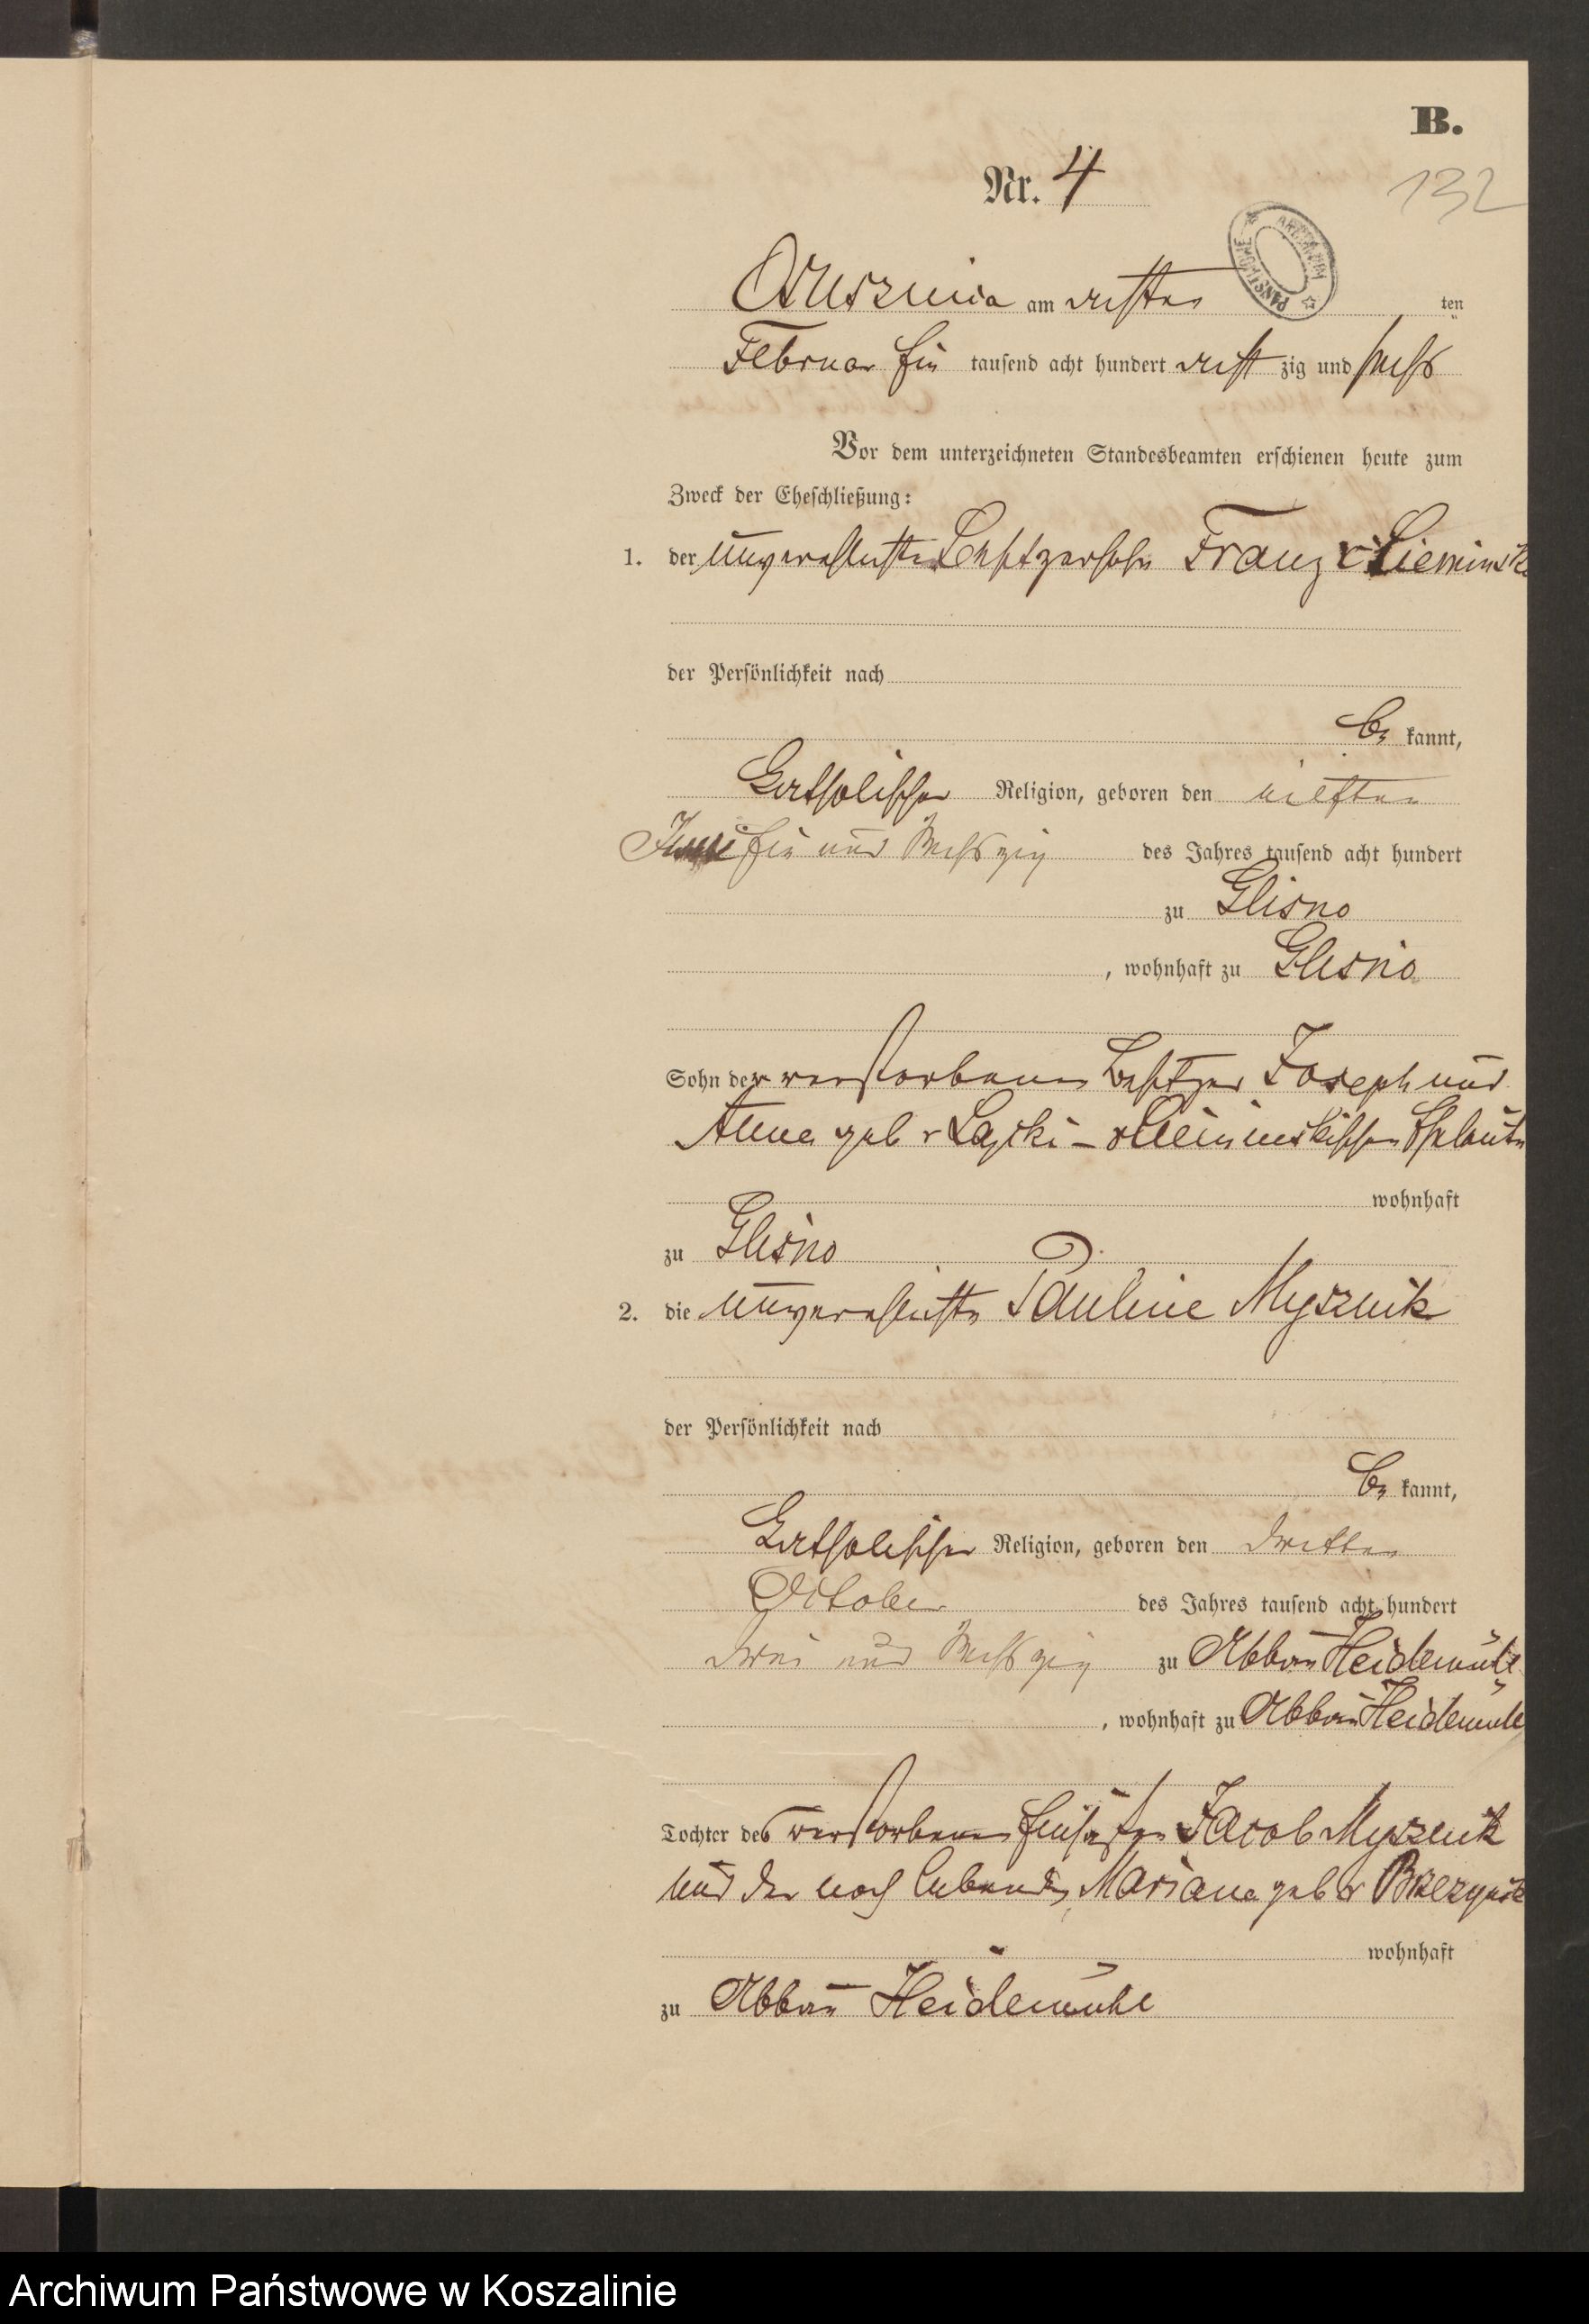 B.
Nr. 4
132
ARCHIWUM PAŃSTWOWE
am achten ten
Februar Ein tausend acht hundert acht zig und sechs
Vor dem unterzeichneten Standesbeamten erschienen heute zum
Zweck der Eheschließung:
1. der unverehelichte Besitzersohn Franz v
der Persönlichkeit nach
be kannt,
Katholischer Religion, geboren den elften
Ein und sechszig des Jahres tausend acht hundert
zu Glisno
, wohnhaft zu Glisno
Sohn der verstorbenen Besitzer Joseph und
Anna geb v Eheleute
wohnhaft
zu Glisno
2. die unverehelichte Pauline Mysznik
der Persönlichkeit nach
be kannt,
Katholischer Religion, geboren den dritten
October des Jahres tausend acht hundert
drei und sechszig zu Abbau Heidemühl
, wohnhaft zu Abbau Heidemühl
Tochter des verstorbenen Jacob Mysznik
und der noch lebenden Mariana geb v
wohnhaft
zu Abbau Heidemühl
Archiwum Państwowe w Koszalinie